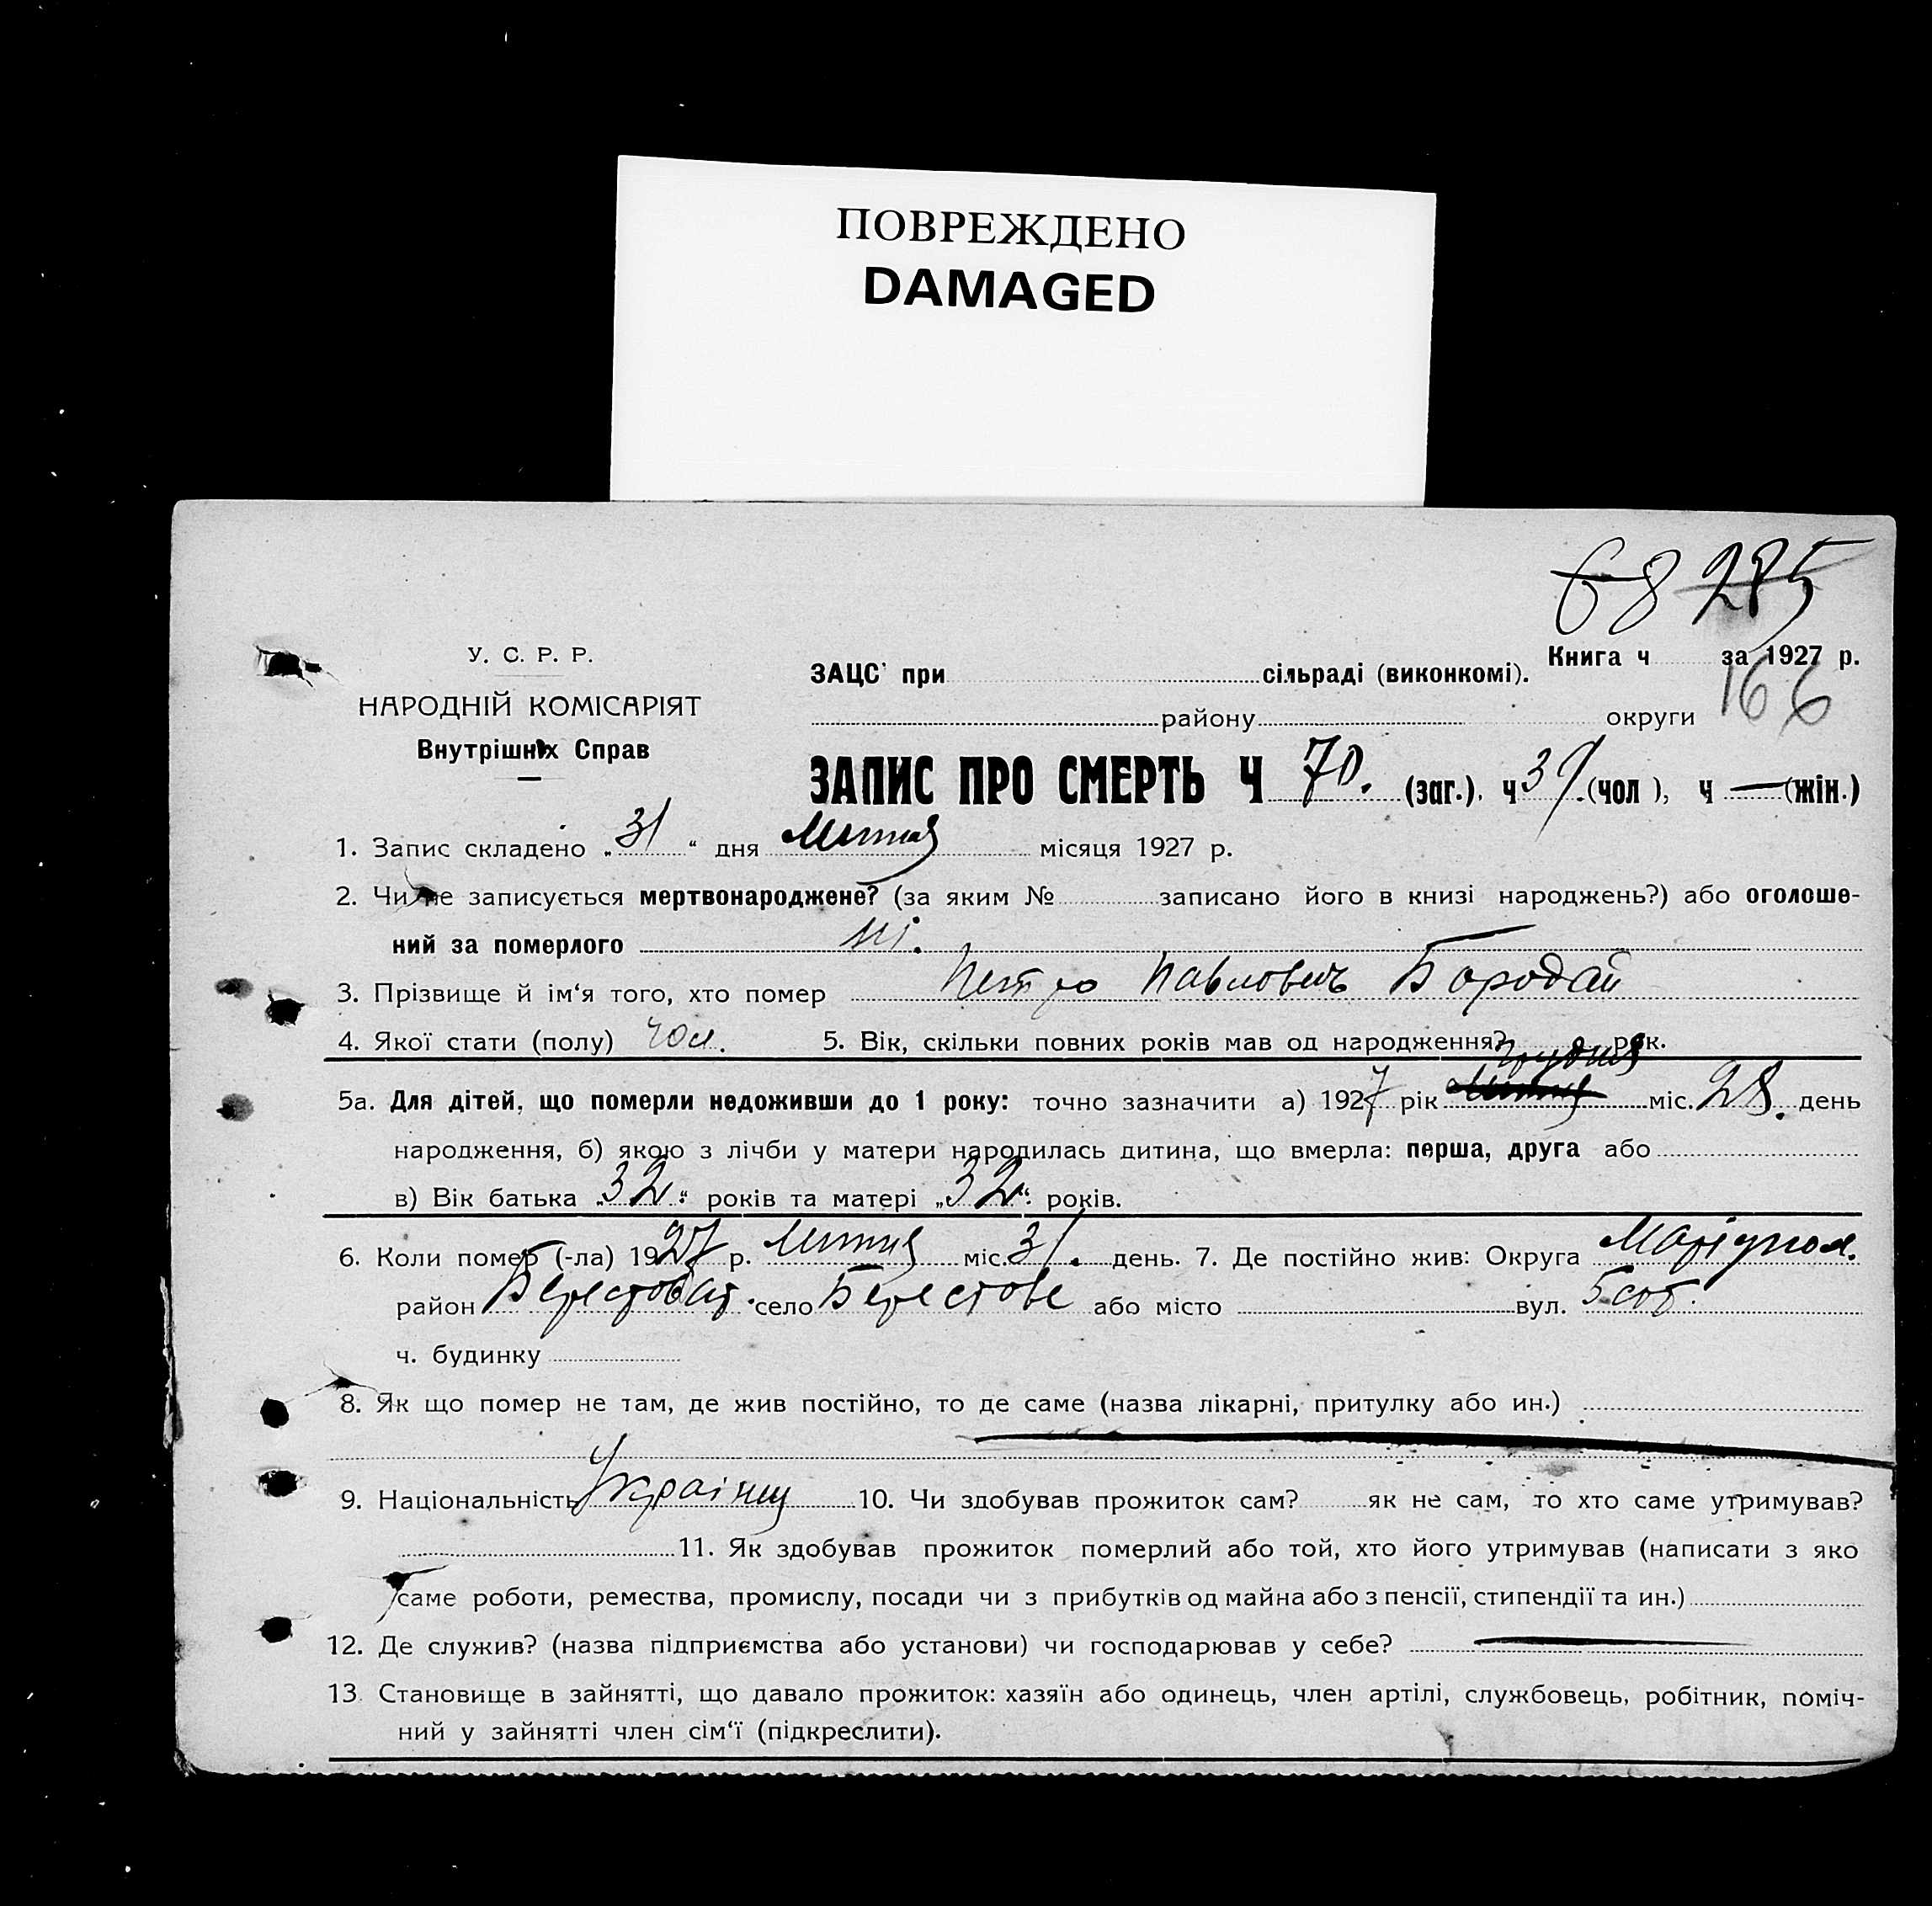 ПОВРЕЖДЕНО
DAMAGED
68 285
У. С. Р. Р.
НАРОДНІЙ КОМІСАРІЯТ
Внутрішніх Справ
Книга ч за 1927 р.
166
ЗАЦС при сільраді (виконкомі).
району округи
ЗАПИС ПРО СМЕРТЬ Ч 70. (заг.), ч 39 (чол), ч — (жін.)
1. Запис складено „31“ дня Липня місяця 1927 р.
2. Чи не записується мертвонароджене? (за яким № записано його в книзі народжень?) або оголоше-
ний за померлого ні.
3. Прізвище й ім‘я того, хто помер Петро Павлович Бородай
4. Якої стати (полу) чол. 5. Вік, скільки повних років мав од народження? рок.
грудня
5а. Для дітей, що померли недоживши до 1 року: точно зазначити а) 1927 рік міс. 28. день
народження, б) якою з лічби у матери народилась дитина, що вмерла: перша, друга або
в) Вік батька „32“ років та матері „32“ років.
6. Коли помер (-ла) 1927 р. Липня міс. 31. день. 7. Де постійно жив: Округа Маріупол.
район Берестоват. село Берестове або місто вул. 5 сот.
ч. будинку
8. Як що помер не там, де жив постійно, то де саме (назва лікарні, притулку або ин.)
9. Національність Україн 10. Чи здобував прожиток сам? як не сам, то хто саме утримував?
11. Як здобував прожиток померлий або той, хто його утримував (написати з яко
саме роботи, ремества, промислу, посади чи з прибутків од майна або з пенсії, стипендії та ин.)
12. Де служив? (назва підприємства або установи) чи господарював у себе?
13. Становище в зайнятті, що давало прожиток: хазяїн або одинець, член артілі, службовець, робітник, поміч-
ний у зайнятті член сім‘ї (підкреслити).